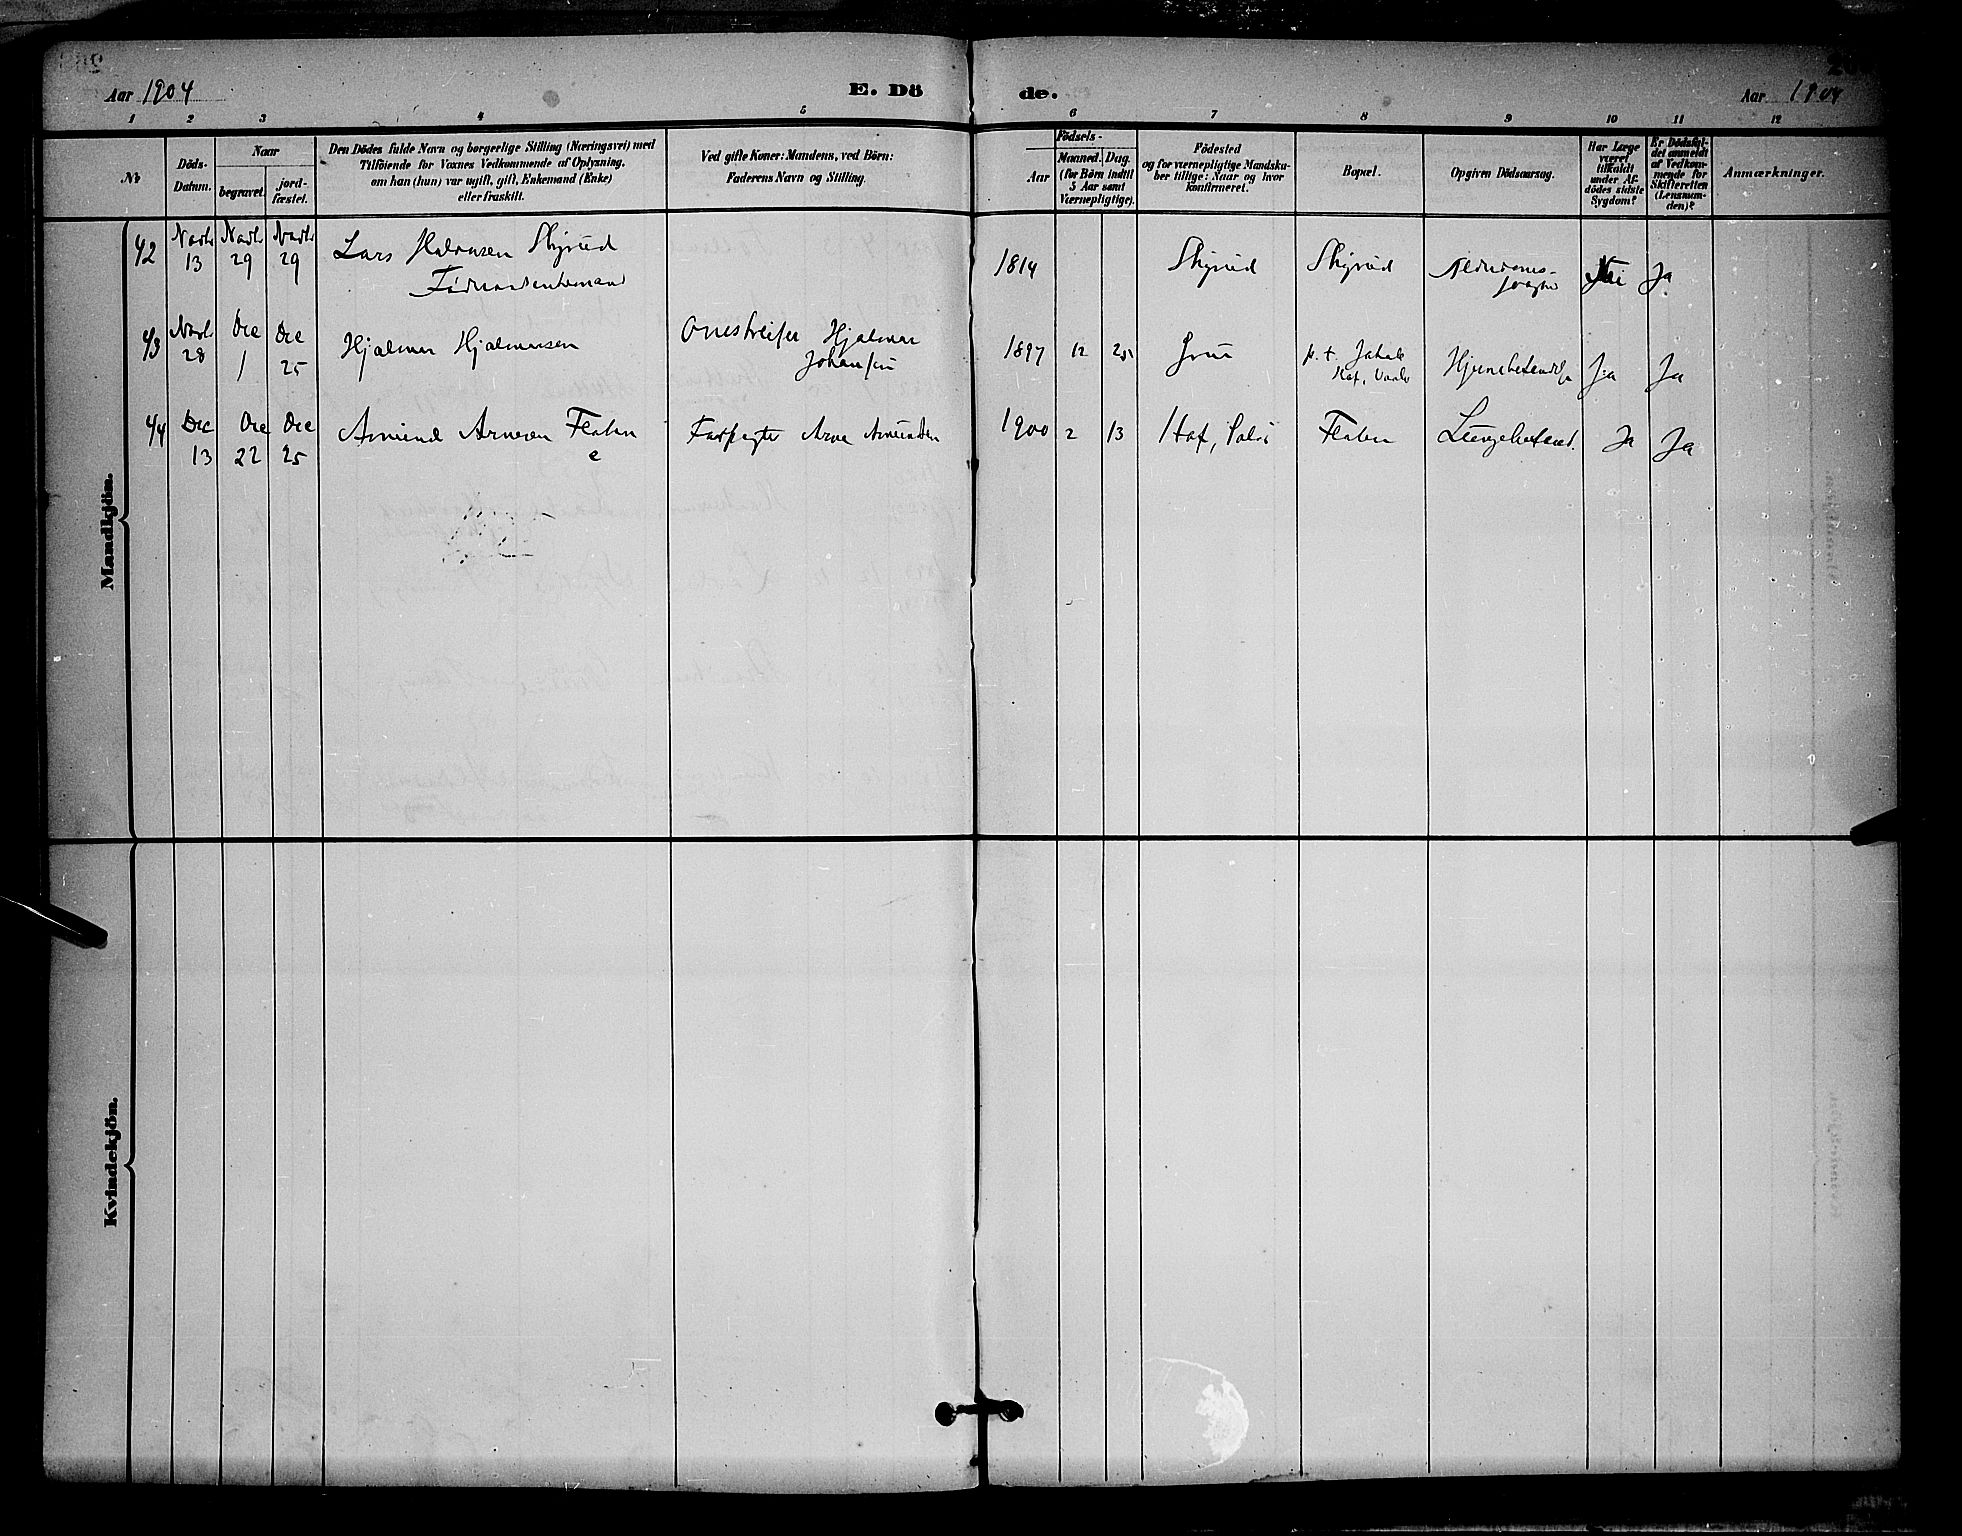 Aar 1904
E. Dö
de.
Aar 1904
1 2 3 4 5 6 7 8 9 10 11 12
№
Döds-
Datum.
Naar
begravet.
jord-
fæstet.
Den Dödes fulde Navn og borgerlige Stilling (Næringsvei) med
Tilföiende for Voxnes Vedkommende af Oplysning,
om han (hun) var ugift, gift, Enkemand (Enke)
eller fraskilt.
Ved gifte Koner: Mandens, ved Börn:
Faderens Navn og Stilling.
Födsels-
Aar
Maaned. Dag.
(for Börn indtil
5 Aar samt
Værnepligtige).
Födested
og for værnepligtige Mandska-
ber tillige: Naar og hvor
konfirmeret.
Bopæl.
Opgiven Dödsaarsag.
Har Læge
været
tilkaldt
under Af-
dödes sidste
Sygdom?
Er Dödsfal-
det anmeldt
af Vedkom-
mende for
Skifteretten
(Lensman-
den)?
Anmærkninger.
Mandkjön.
42 Novbr 13 Novbr 29 Novbr 29 Lars Halvorsen Skyrud
1814 Skyrud Skyrud Nei Ja
43 Novbr 28 Dec 1 Dec 25 Hjalmar Hjalmarsen Omstreifer Hjalmar
Johansen
1897 12 25 Grue p. t. Hjernebetændelse Ja Ja
44 Dec 13 Dec 22 Dec 25 Amund Arnesen Flaten Forpagter Arne Amundsen
e
1900 2 13 Hof, Solör Flaten Lungebetænd. Ja Ja
Kvindekjön.